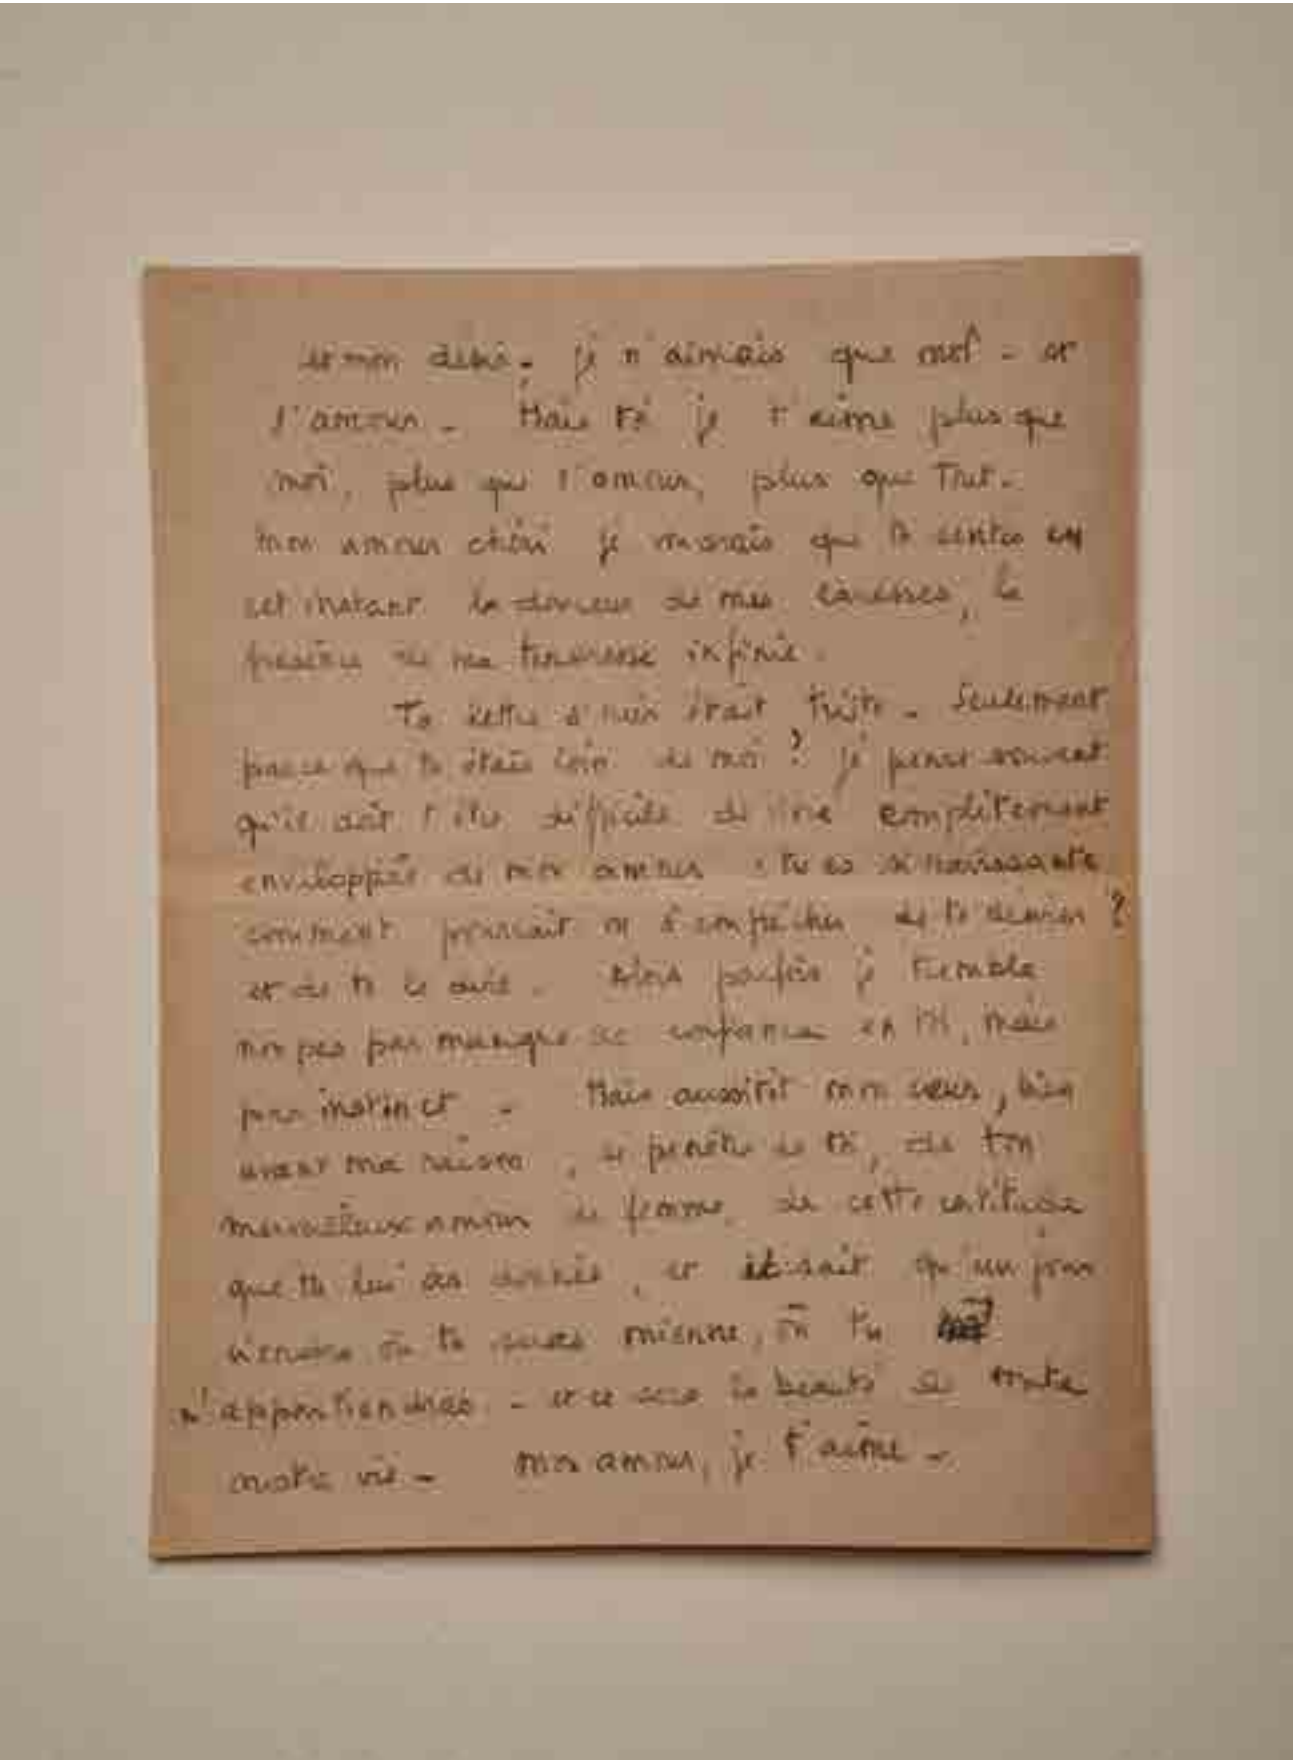 et mon désir. je n'aimais que moi - et
l'amour - Mais toi je t'aime plus que
moi, plus que l'amour, plus que tout.
mon amour chéri je voudrais que tu sentes en
cet instant la douceur de mes caresses, la
de ma tendresse infinie.
Ta lettre d'hier était triste - Seulement
parce que tu étais loin de moi ? je pense souvent
qu'il doit t'être difficile de vivre complètement
enveloppée de mon amour : tu es si ravissante
comment pourrait on s'empêcher de te désirer ?
et de te le dire. Alors parfois je tremble
non pas par manque de confiance en toi, mais
par instinct - Mais aussitôt mon cœur, bien
avant ma raison, se penètre de toi, de ton
merveilleux amour de femme, de cette certitude
que tu lui as donnée, et il sait qu'un jour
viendra où tu seras mienne, où tu
m'appartiendras - et ce sera la beauté de toute
notre vie - mon amour, je t'aime -